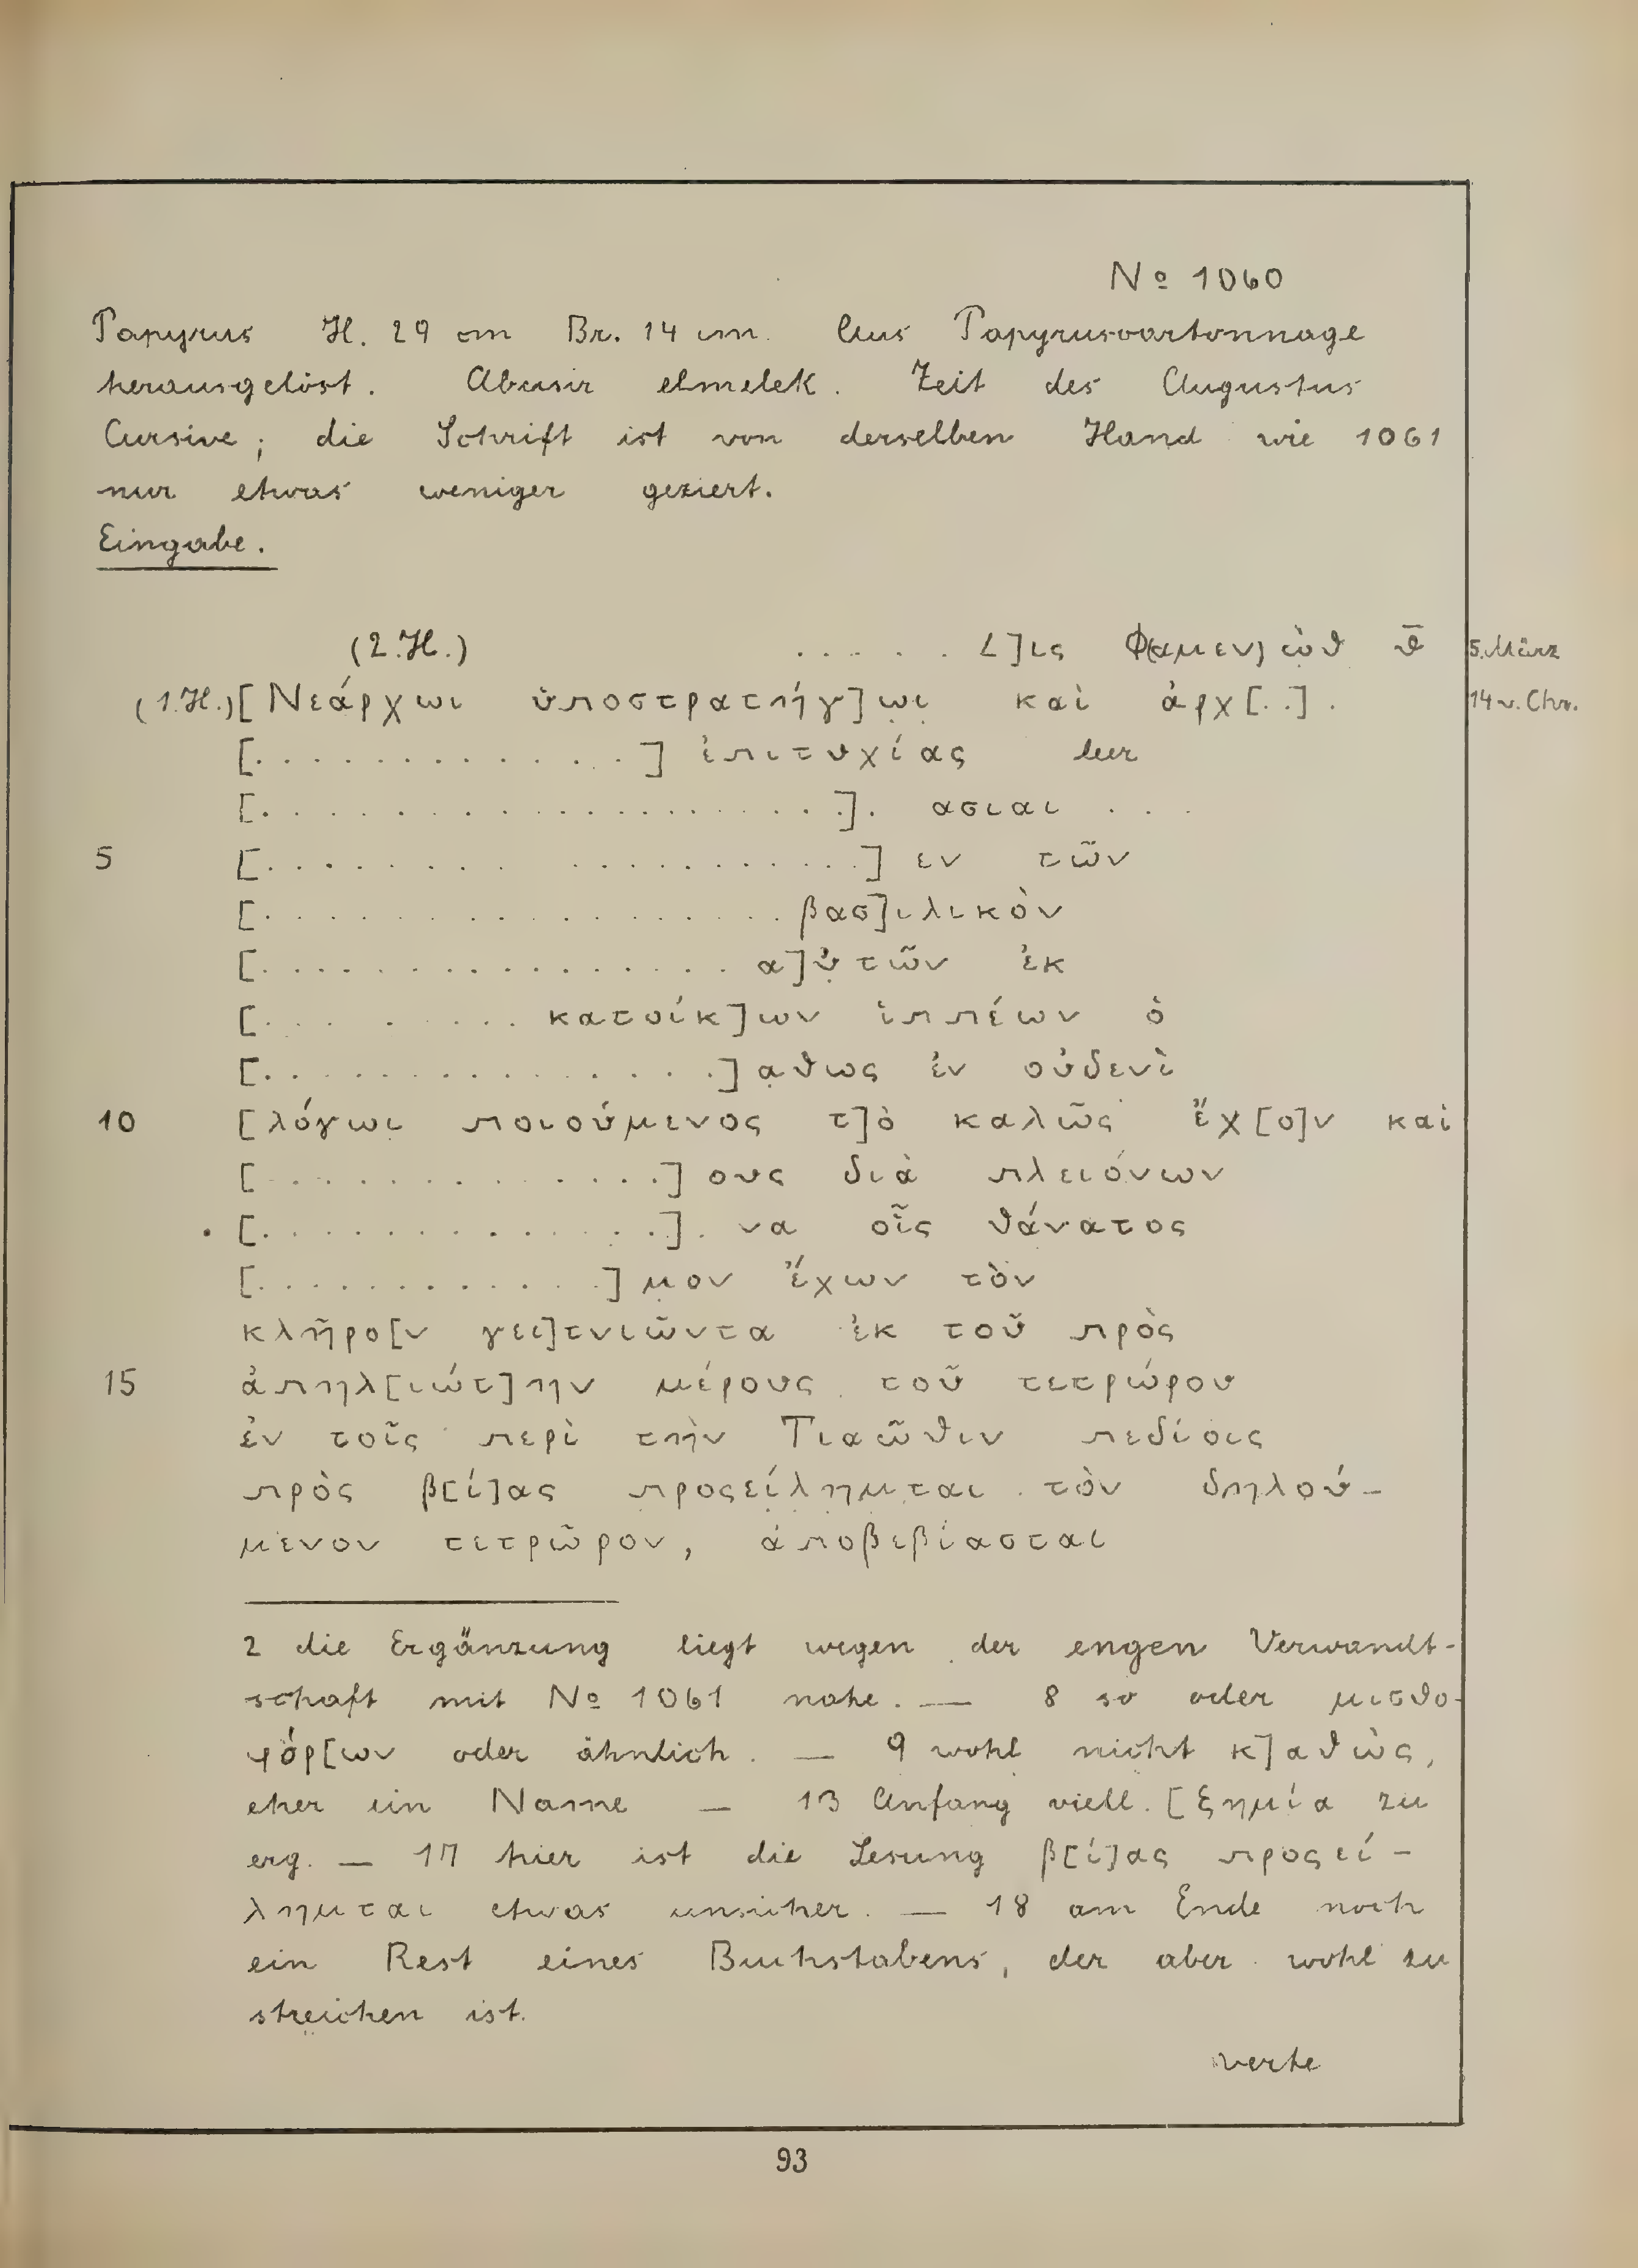 Nº 1060
Papyrus H. 29 cm Br. 14 cm. Aus Papyruscartonnage
herausgelöst. Abusir elmelek. Zeit des Augustus
Cursive; die Schrift ist von derselben Hand wie 1061
nur etwas weniger geziert.
Eingabe.
(2.H.) . . . . . L]ις Φ(αμεν)ὼθ θ̄ 5. März
(1.H.) [Νεάρχωι ὑποστρατήγ]ωι καὶ ἀρχ[..]. 14 v. Chr.
[. . . . . . . . . . . . . .] ἐπιτυχίας leer
[. . . . . . . . . . . . . . . . . .]. ασιαι . . .
5 [. . . . . . . . . . . . . . . . . .] εν τῶν
[. . . . . . . . . . . . . . . . βασ]ιλικὸν
[. . . . . . . . . . . . . . . . α]ὐτῶν ἐκ
[. . . . . . . . κατοίκ]ων ἱππέων ὁ
[. . . . . . . . . . . . . . .] αθως ἐν οὐδενὶ
10 [λόγωι ποιούμενος τ]ὸ καλῶς ἔχ[ο]ν καὶ
[. . . . . . . . . . . . . .] ους διὰ πλειόνων
[. . . . . . . . . . . . . .]. να οἷς θάνατος
[. . . . . . . . . . . .] μον ἔχων τὸν
κλῆρο[ν γει]τνιῶντα ἐκ τοῦ πρὸς
15 ἀπηλ[ιώτ]ην μέρους τοῦ τετρώρου
ἐν τοῖς περὶ τὴν Τιαῶθιν πεδίοις
πρὸς β[ί]ας προςείλημται τὸν δηλού-
μενον τετρῶρον, ἀποβεβίασται
2 die Ergänzung liegt wegen der engen Verwandt-
schaft mit Nº 1061 nahe. — 8 so oder μισθο-
φόρ[ων oder ähnlich. — 9 wohl nicht κ]αθὼς,
eher ein Name — 13 Anfang viell. [ξημία zu
erg. — 17 hier ist die Lesung β[ί]ας προςεί-
λημται etwas unsicher. — 18 am Ende noch
ein Rest eines Buchstabens, der aber wohl zu
streichen ist.
verte
93